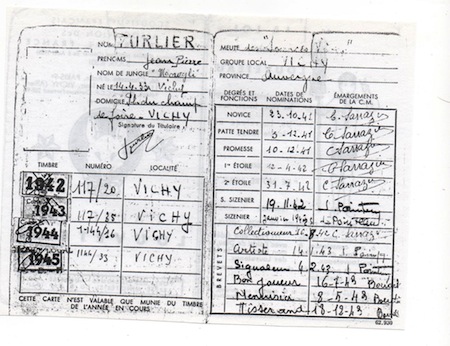 NOM TURLIER
PRENOMS Jean Pierre
NOM DE JUNGLE "Mowgli"
NÉ LE 14.4.33 Vichy
DOMICILE champ
de foire - VICHY
Signature du Titulaire
TIMBRE NUMÉRO LOCALITÉ
1942 117/20 VICHY
1943 117/25 VICHY
1944 VICHY
1945 VICHY
CETTE CARTE N'EST VALABLE QUE MUNIE DU TIMBRE
DE L'ANNÉE EN COURS
MEUTE des "Sources Vives"
GROUPE LOCAL VICHY
PROVINCE Auvergne
DEGRÉS ET FONCTIONS DATES DE NOMINATIONS ÉMARGEMENTS DE LA C.M.
NOVICE 23.10.41 C. Sarrazin
PATTE TENDRE 3-12.41 C. Sarrazin
PROMESSE 10-12.41 C. Sarrazin
1re ÉTOILE 12-4.42 C. Sarrazin
2e ÉTOILE 31.7.42 C. Sarrazin
S. SIZENIER 19.11.42
SIZENIER janvier
BREVETS
Collectionneur C. Sarrazin
Artiste 14.1.43
Signaleur 4.2.43
Bon joueur 16-7-43
Menuisier 8-5-43
Tisserand 18-12-43
62.939